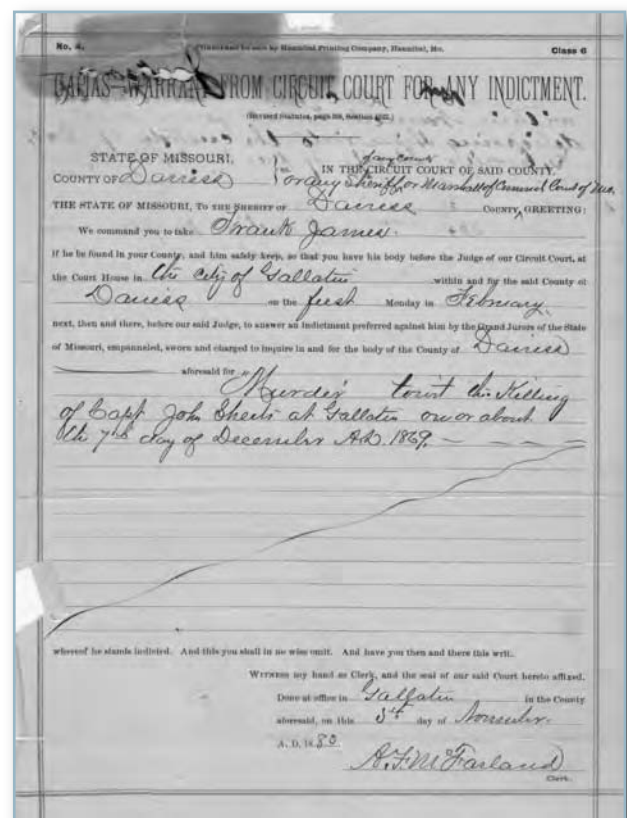 No. 4. Hannibal Printing Company, Hannibal, Mo. Class 6
WARRANT FROM CIRCUIT COURT FOR ANY INDICTMENT.
STATE OF MISSOURI,
COUNTY OF Daviess
IN THE CIRCUIT COURT OF SAID COUNTY.
or any Sheriff, or Marshall of Criminal Court of Mo.
THE STATE OF MISSOURI, TO THE SHERIFF OF Daviess COUNTY, GREETING:
We command you to take Frank James.
if he be found in your County, and him safely keep, so that you have his body before the Judge of our Circuit Court, at
the Court House in the city of Gallatin within and for the said County of
Daviess on the first Monday in February
next, then and there, before our said Judge, to answer an indictment preferred against him by the Grand Jurors of the State
of Missouri, empanneled, sworn and charged to inquire in and for the body of the County of Daviess
aforesaid for Murder towit the Killing
of Capt John Sheets at Gallatin on or about
the 7th day of December A.D. 1869.
whereof he stands indicted. And this you shall in no wise omit. And have you then and there this writ.
WITNESS my hand as Clerk, and the seal of our said Court hereto affixed.
Done at office in Gallatin in the County
aforesaid, on this day of November.
A. D. 18
A. F. McFarland
Clerk.